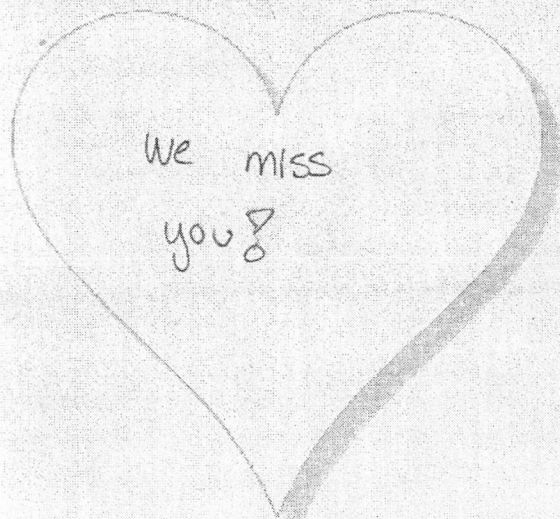 We miss
you!